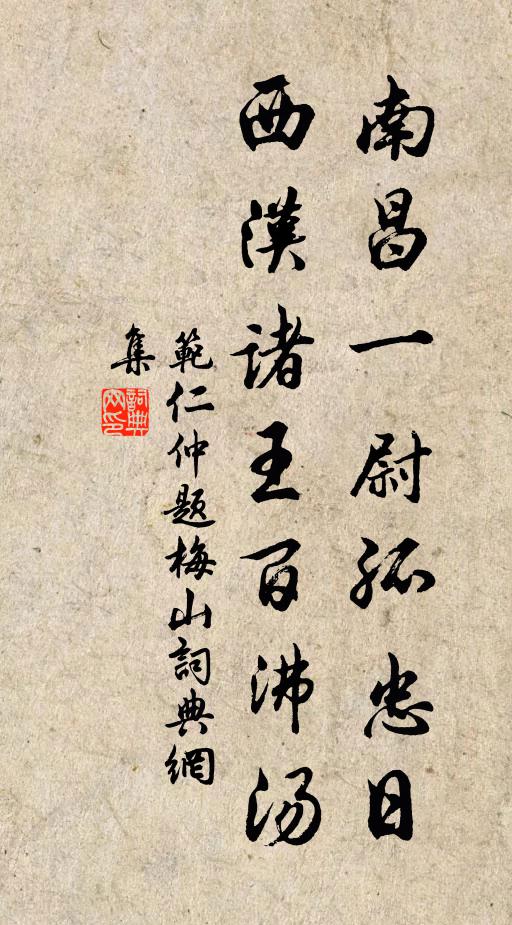 南昌一尉孤忠日
西漢諸王百沸汤
範仁仲题梅山詞典網
集
詞典网印